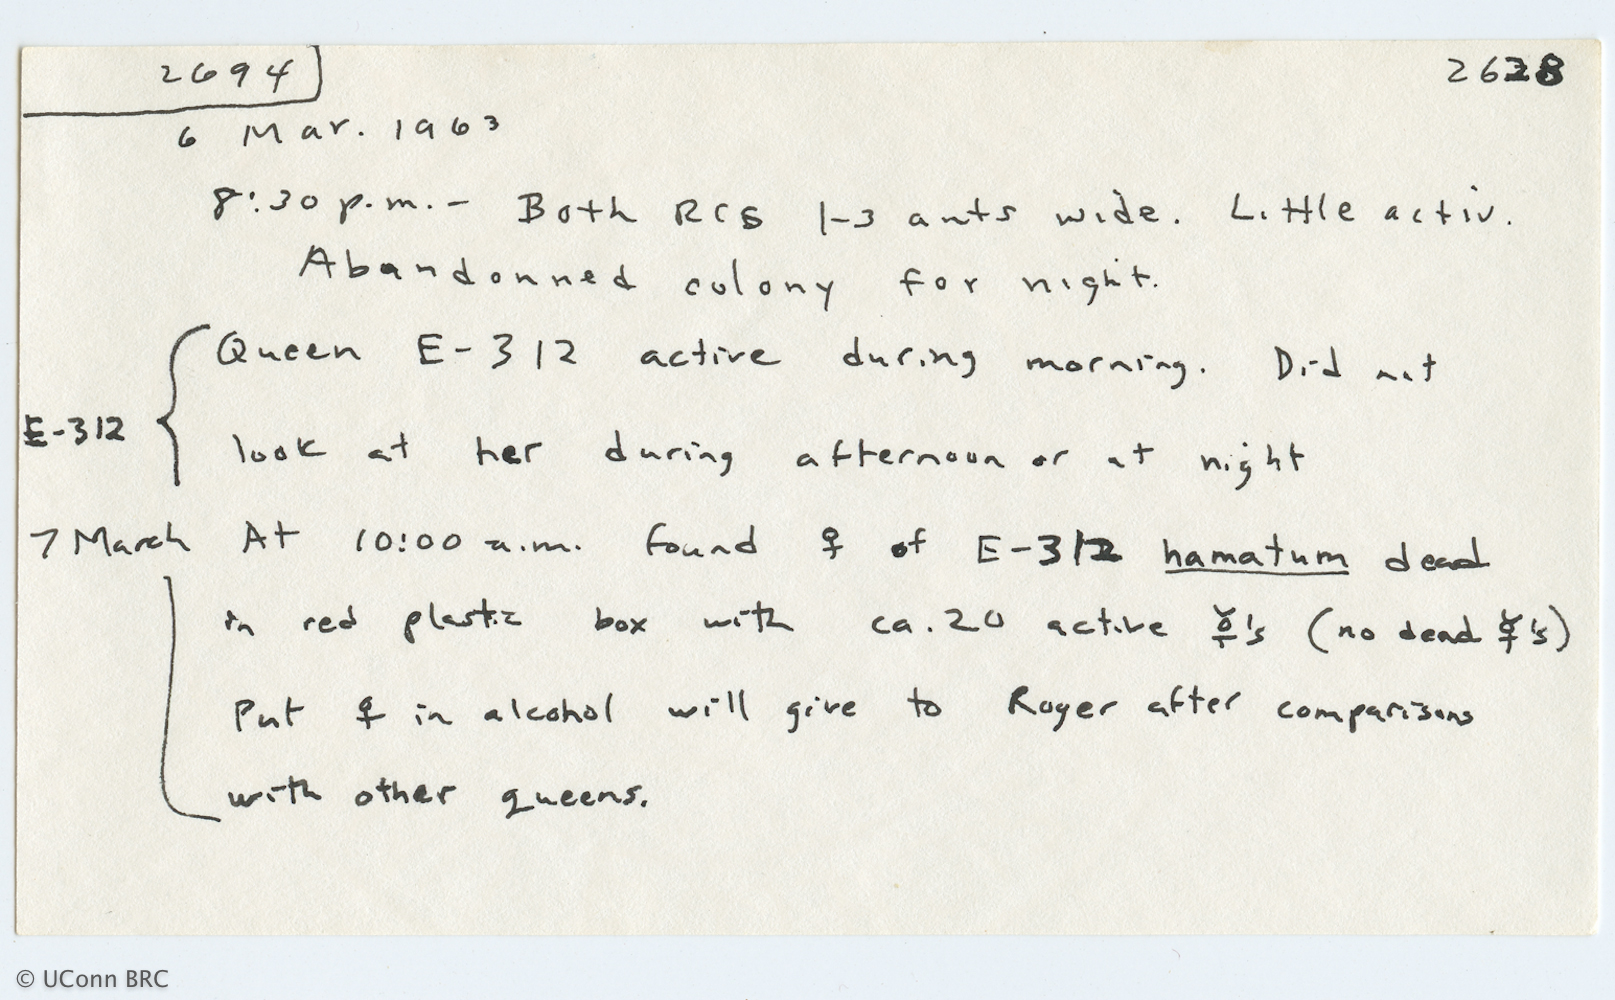 2694
2628
6 Mar. 1963
8:30 p.m. - Both RCs 1-3 ants wide. Little activ.
Abandonned colony for night.
Queen E-312 active during morning. Did not
E-312
look at her during afternoon or at night
7 March At 10:00 a.m. found ♀ of E-312 hamatum dead
in red plastic box with ca. 20 active ☿'s (no dead ☿'s)
Put ♀ in alcohol will give to Roger after comparisons
with other queens.
© UConn BRC